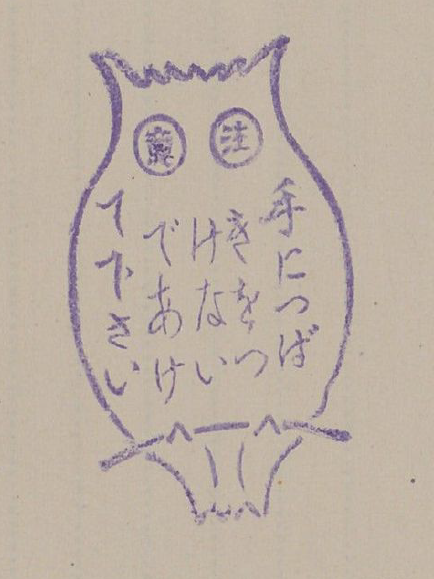 注意
手につば
きをつ
けない
であけ
て下さい